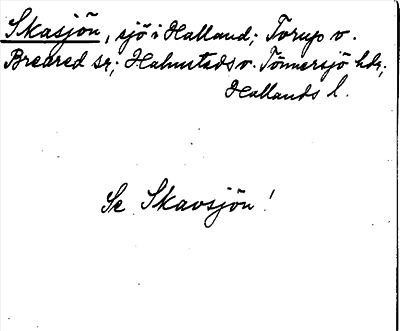 Skasjön, sjö i Halland; Torup o.
Breared sr; Halmstads o. Tönnersjö hdr;
Hallands l.
Se Skavsjön!